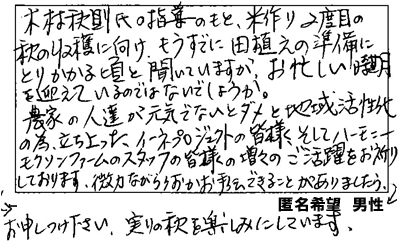 木村秋則氏の指導のもと、米作り2度目の
秋の収穫に向け、もうすでに田植えの準備に
とりかかる頃と聞いていますが、お忙しい時期
を迎えているのではないでしょうか。
農家の人達が元気でないとダメと地域活性化
の為、立ち上った、イーネプロジェクトの皆様、そしてハーモニー
モクソンファームのスタッフの皆様の増々のご活躍をお祈り
しております。微力ながら何かお手伝できることがありましたら、
匿名希望 男性
お申しつけ下さい。実りの秋を楽しみにしています。